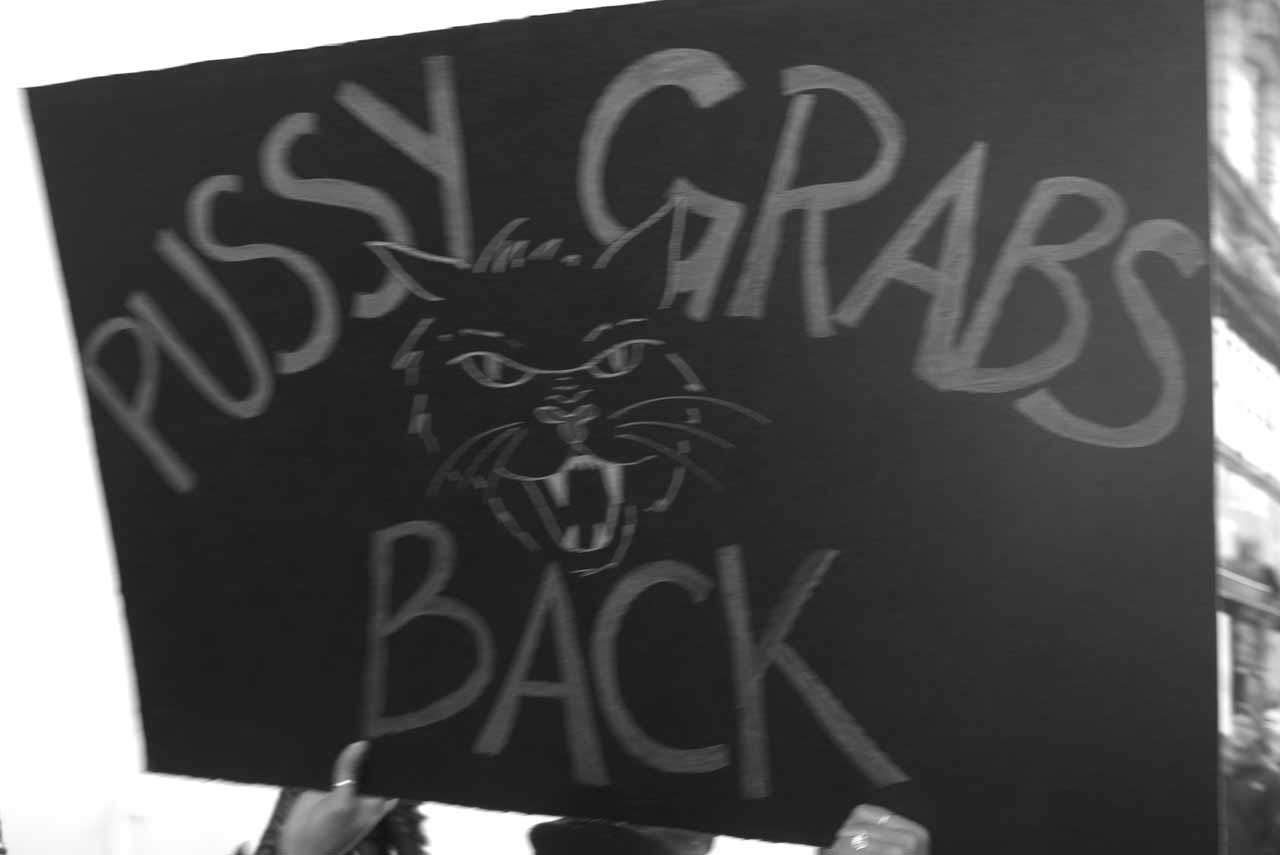 PUSSY GRABS
BACK